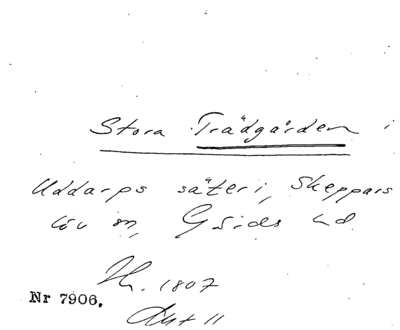 Stora Trädgården i
Uddarps säteri, Skeppars
löv sn, Gärds hd
Nr 7906.
1807